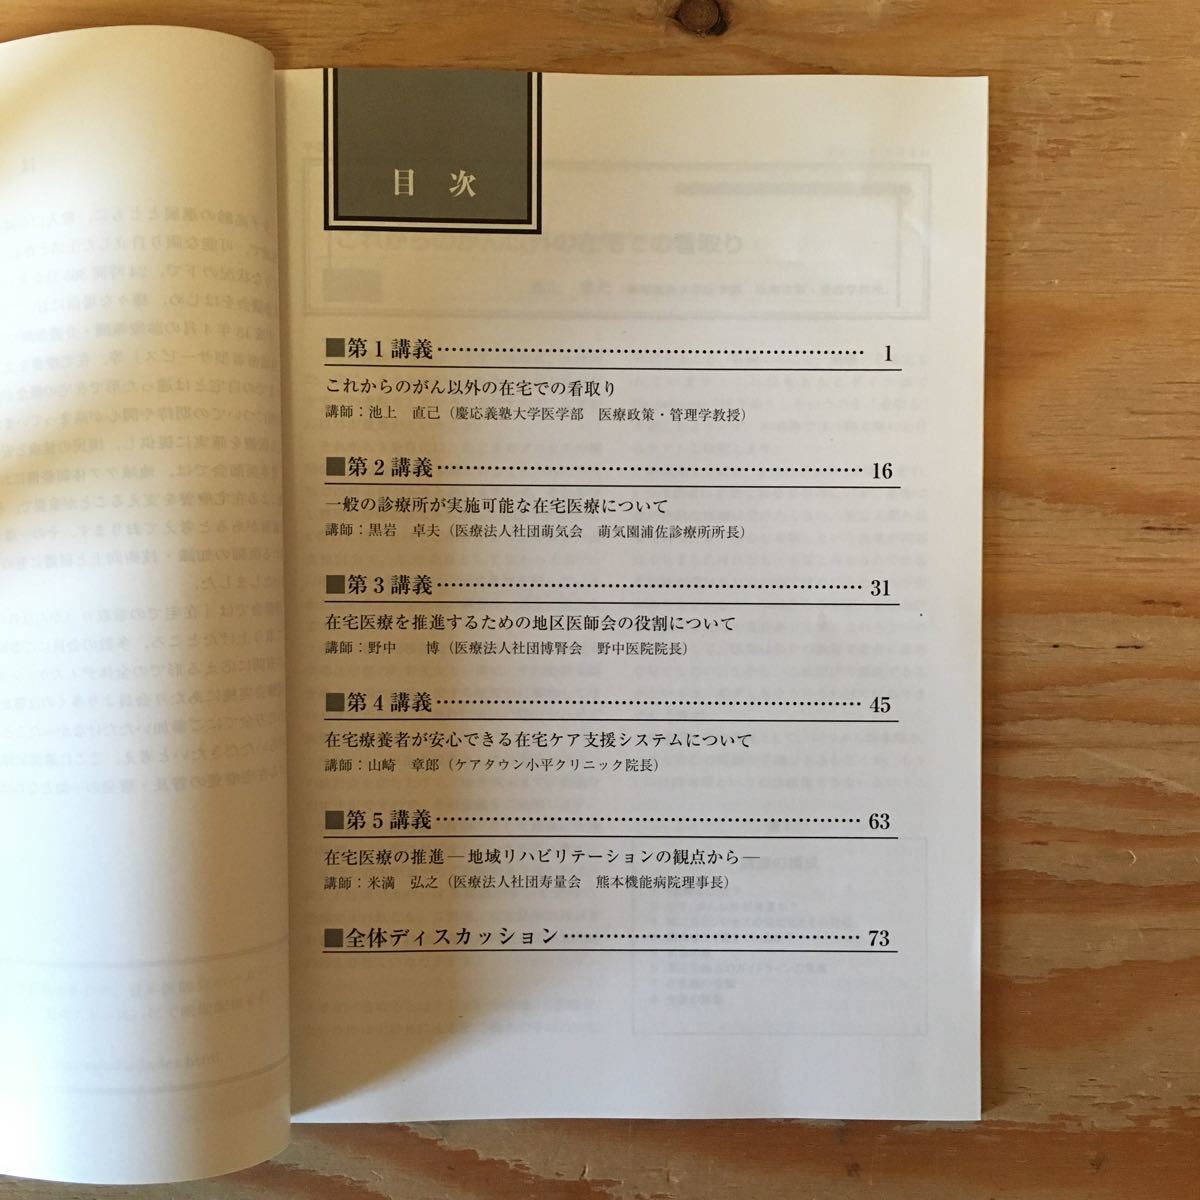 目 次
■第1講義 1
これからのがん以外の在宅での看取り
講師：池上 直己（慶応義塾大学医学部 医療政策・管理学教授）
■第2講義 16
一般の診療所が実施可能な在宅医療について
講師：黒岩 卓夫（医療法人社団萌気会 萌気園浦佐診療所所長）
■第3講義 31
在宅医療を推進するための地区医師会の役割について
講師：野中 博（医療法人社団博腎会 野中医院院長）
■第4講義 45
在宅療養者が安心できる在宅ケア支援システムについて
講師：山崎 章郎（ケアタウン小平クリニック院長）
■第5講義 63
在宅医療の推進―地域リハビリテーションの観点から―
講師：米満 弘之（医療法人社団寿量会 熊本機能病院理事長）
■全体ディスカッション 73